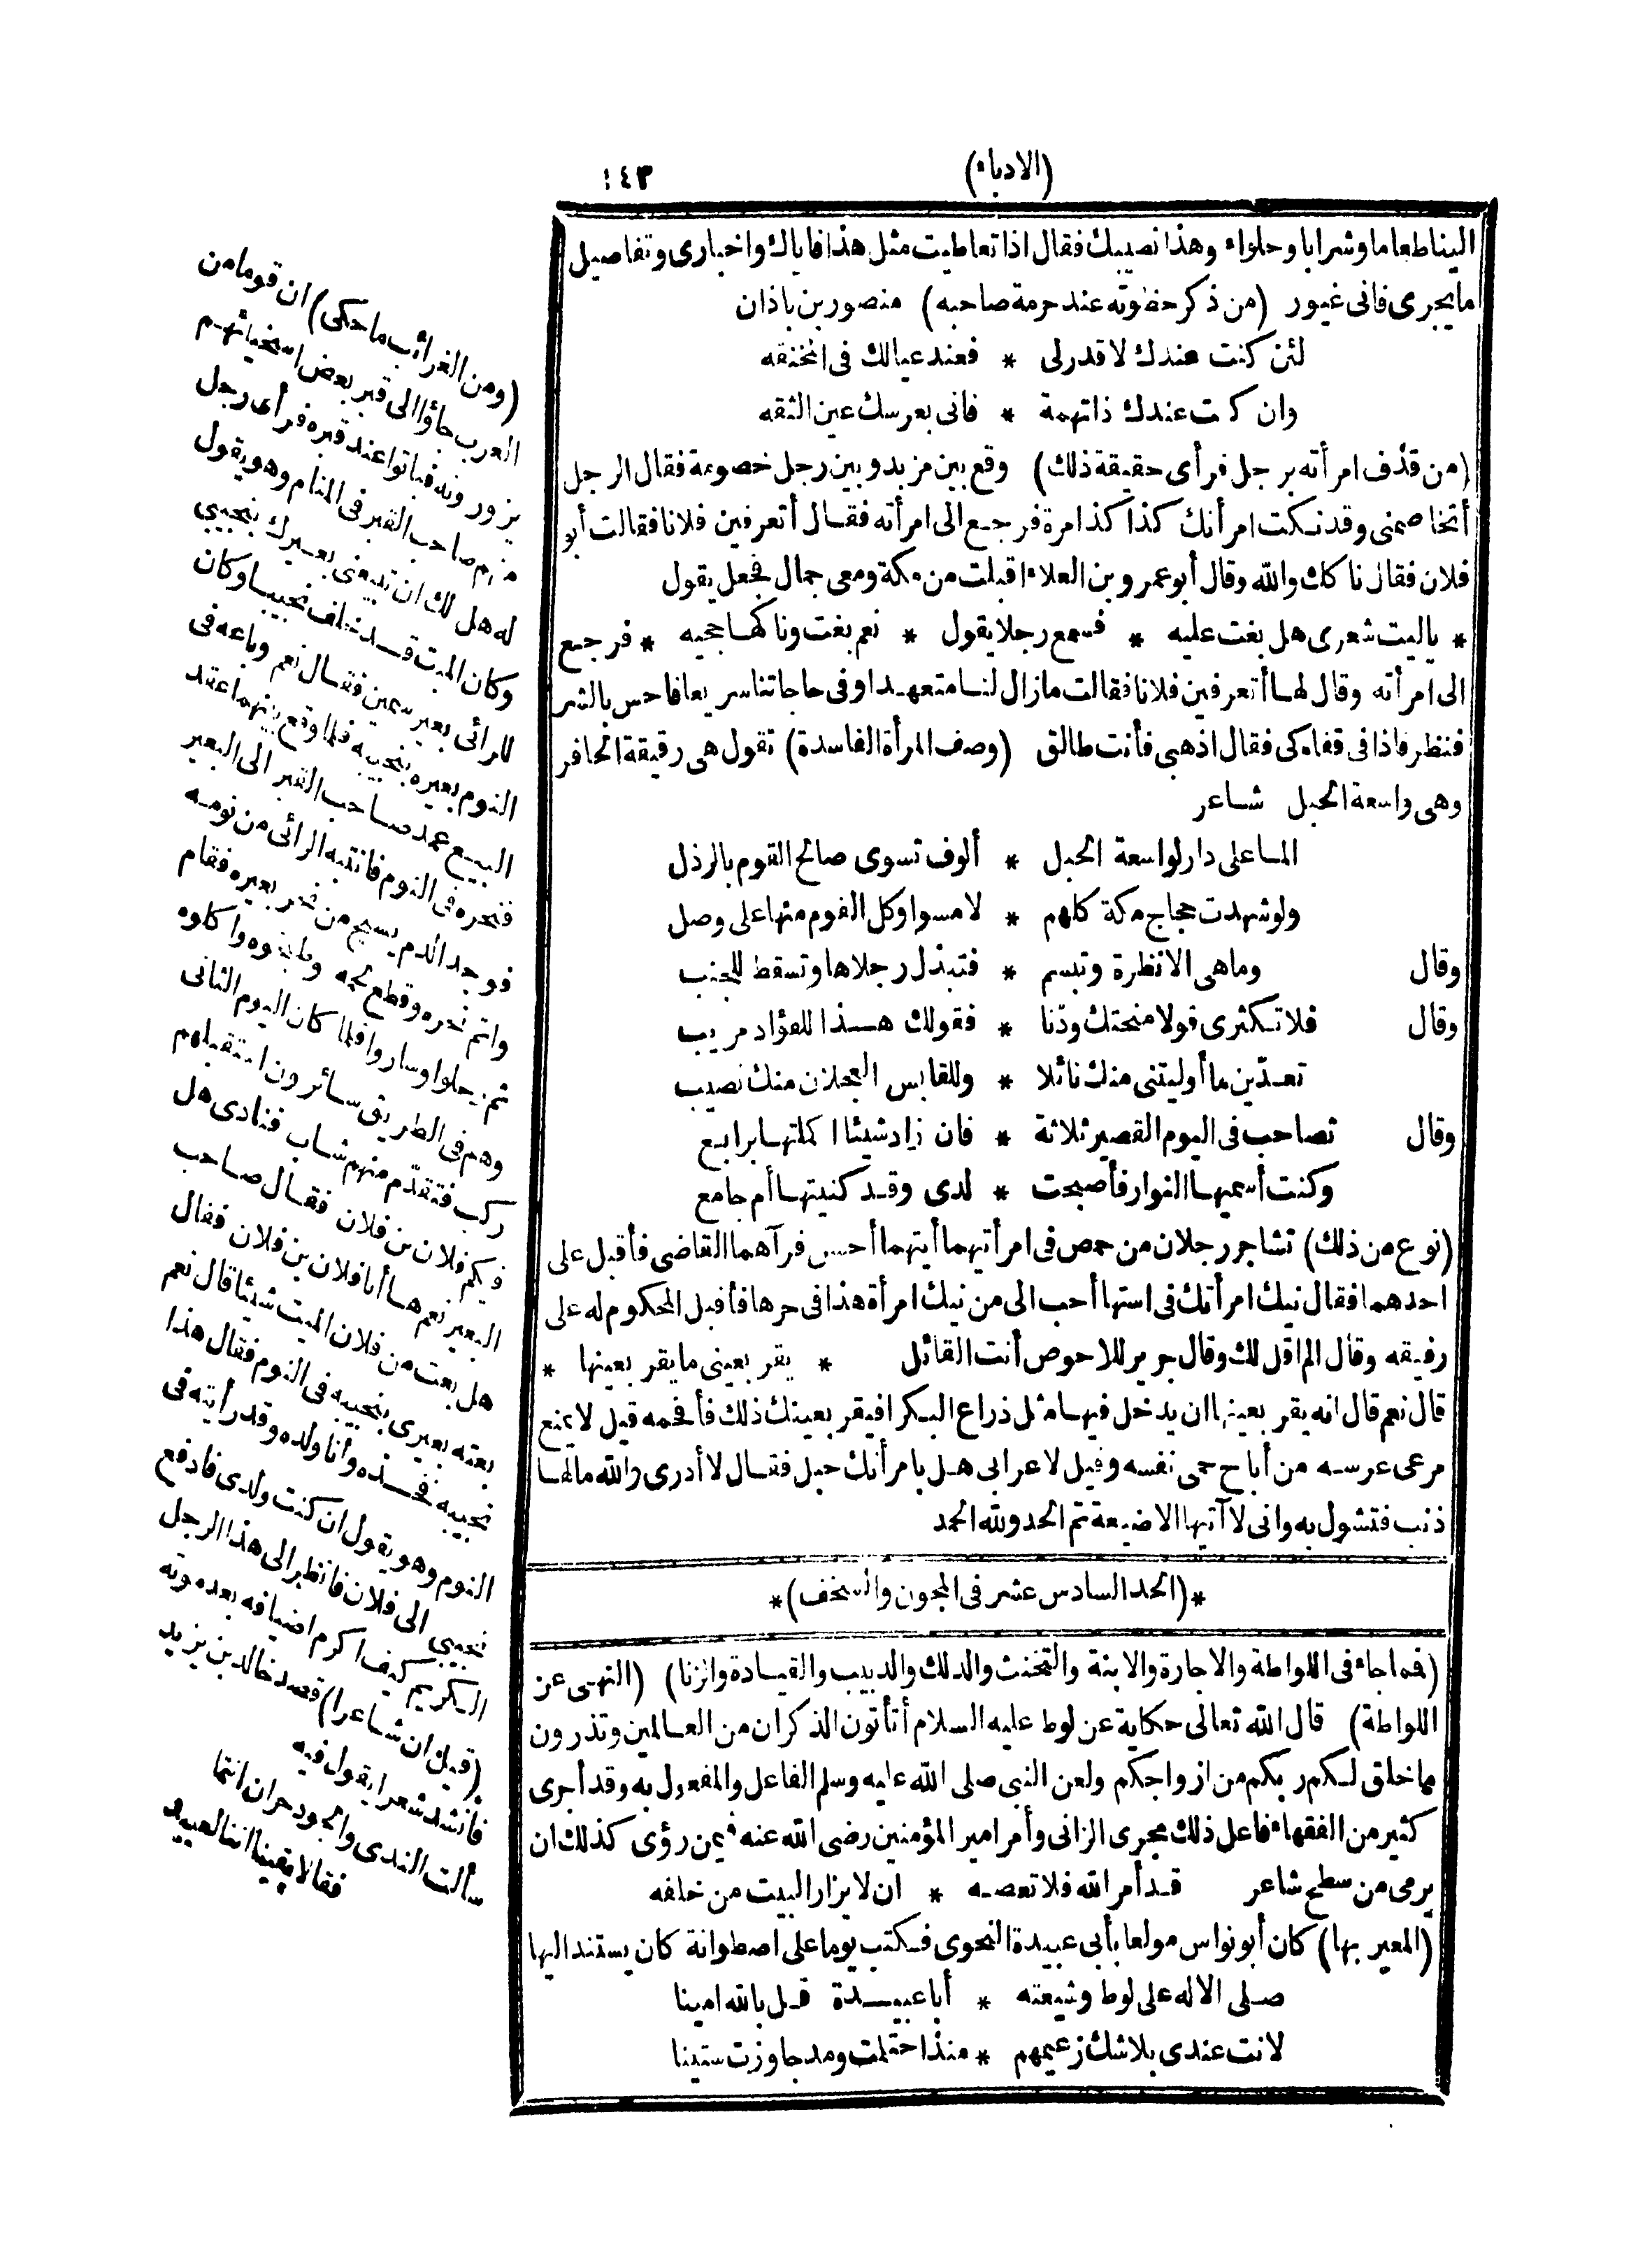 (الادباء)
١٤٣
الينا طعاما وشرابا وحلواء وهذا نصيبك فقال اذا تعاطيت مثل هذا فاياك واخبارى وتفاصيل
ما يجرى فانى غيور (من ذكر حظوته عند حرمة صاحبه) منصور بن باذان
لئن كنت عندك لا قدر لى * فعند عيالك فى المخنقه
وان كنت عندك ذا تهمة * فانى بعرسك عين الثقه
(من قذف امرأته برجل فرأى حقيقة ذلك) وقع بين مزبد وبين رجل خصومة فقال الرجل
أتخاصمنى وقد نكت امرأتك كذا كذا مرة فرجع الى امرأته فقال أتعرفين فلانا فقالت أبو
فلان فقال ناكك والله وقال أبو عمرو بن العلاء اقبلت من مكة ومعى جمال فجعل يقول
* ياليت شعرى هل بغت عليه * فسمع رجلا يقول * نعم بغت وناكها حجيه * فرجع
الى امرأته وقال لها أتعرفين فلانا فقالت مازال لنا متعهدا وفى حاجاتنا سريعا فاحس بالشر
فنظر فاذا فى قفاه كى فقال اذهبى فأنت طالق (وصف المرأة الفاسدة) تقول هى رقيقة الحافر
وهى واسعة الحبل شاعر
الما على دار لواسعة الحبل * ألوف تسوى صالح القوم بالرذل
ولو شهدت حجاج مكة كلهم * لامسوا وكل القوم منها على وصل
وقال وما هى الا نظرة وتبسم * فتبذل رجلاها وتسقط للجنب
وقال فلا تكثرى قولا منحتك ودنا * فقولك هذا للفؤاد مريب
تعدّين ما أوليتنى منك نائلا * وللقابس العجلان منك نصيب
وقال تصاحب فى اليوم القصير ثلاثة * فان زاد شيئا اكملتها برابع
وكنت أسميها النوار فأصبحت * لدى وقد كنيتها أم جامع
(نوع من ذلك) تشاجر رجلان من حمص فى امرأتيهما أيتهما أحسن فرآهما القاضى فأقبل على
احدهما فقال نيك امرأتك فى استها أحب الى من نيك امرأة هذا فى حرها فأقبل المحكوم له على
رفيقه وقال الم اقل لك وقال جرير للاحوص أنت القائل * يقر بعينى ما يقر بعينها *
قال نعم قال انه يقر بعينها ان يدخل فيها مثل ذراع البكر افيقر بعينك ذلك فأفحمه قيل لا يمنع
مرعى عرسه من أباح حمى نفسه وقيل لاعرابى هل بامرأتك حبل فقال لا أدرى والله مالها
ذنب فتشول به وانى لا آتيها الا ضبعة تم الحد ولله الحمد
*(الحد السادس عشر فى المجون والسخف)*
(فما جاء فى اللواطة والاجارة والابنة والتخنث والدلك والدبيب والقيادة والزنا) (النهى عن
اللواطة) قال الله تعالى حكاية عن لوط عليه السلام أتأتون الذكران من العالمين وتذرون
ما خلق لكم ربكم من ازواجكم ولعن النبى صلى الله عليه وسلم الفاعل والمفعول به وقد أجرى
كثير من الفقهاء فاعل ذلك مجرى الزانى وأمر امير المؤمنين رضى الله عنه فيمن رؤى كذلك ان
يرمى من سطح شاعر قد أمر الله فلا تعصه * ان لا يزار البيت من خلفه
(المعير بها) كان أبو نواس مولعا بأبى عبيدة النحوى فكتب يوما على اصطوانة كان يستند اليها
صلى الاله على لوط وشيعته * أبا عبيدة قل بالله امينا
لانت عندى بلا شك زعيمهم * منذ احتلمت ومذ جاوزت ستينا
(ومن الغرائب ما حكى) ان قوما من
العرب جاؤا الى قبر بعض اسخيائهم
يزورونه فباتوا عند قبره فرأى رجل
منهم صاحب القبر فى المنام وهو يقول
له هل لك ان تبيعنى بعيرك بنجيبى
وكان الميت قد خلف نجيبا وكان
للرائى بعير سمين فقال نعم وباعه فى
النوم بعيره بنجيبه فلما وقع بينهما عقد
البيع عمد صاحب القبر الى البعير
فنحره فى النوم فانتبه الرائى من نومه
فوجد الدم يسيح من نحر بعيره فقام
واتم نحره وقطع لحمه وطبخوه واكلوه
ثم رحلوا وساروا فلما كان اليوم الثانى
وهم فى الطريق سائرون استقبلهم
ركب فتقدم منهم شاب فنادى هل
فيكم فلان بن فلان فقال صاحب
البعير نعم ها أنا فلان بن فلان فقال
هل بعت من فلان الميت شيئا قال نعم
بعته بعيرى بنجيبه فى النوم فقال هذا
نجيبه فخذه وأنا ولده وقد رأيته فى
النوم وهو يقول ان كنت ولدى فادفع
نجيبى الى فلان فانظر الى هذا الرجل
الكريم كيف اكرم اضيافه بعد موته
(قيل ان شاعرا) قصد خالد بن يزيد
فأنشد شعرا يقول فيه
سألت الندى والجود حران انتما
فقالا يقينا اننا لعبيد